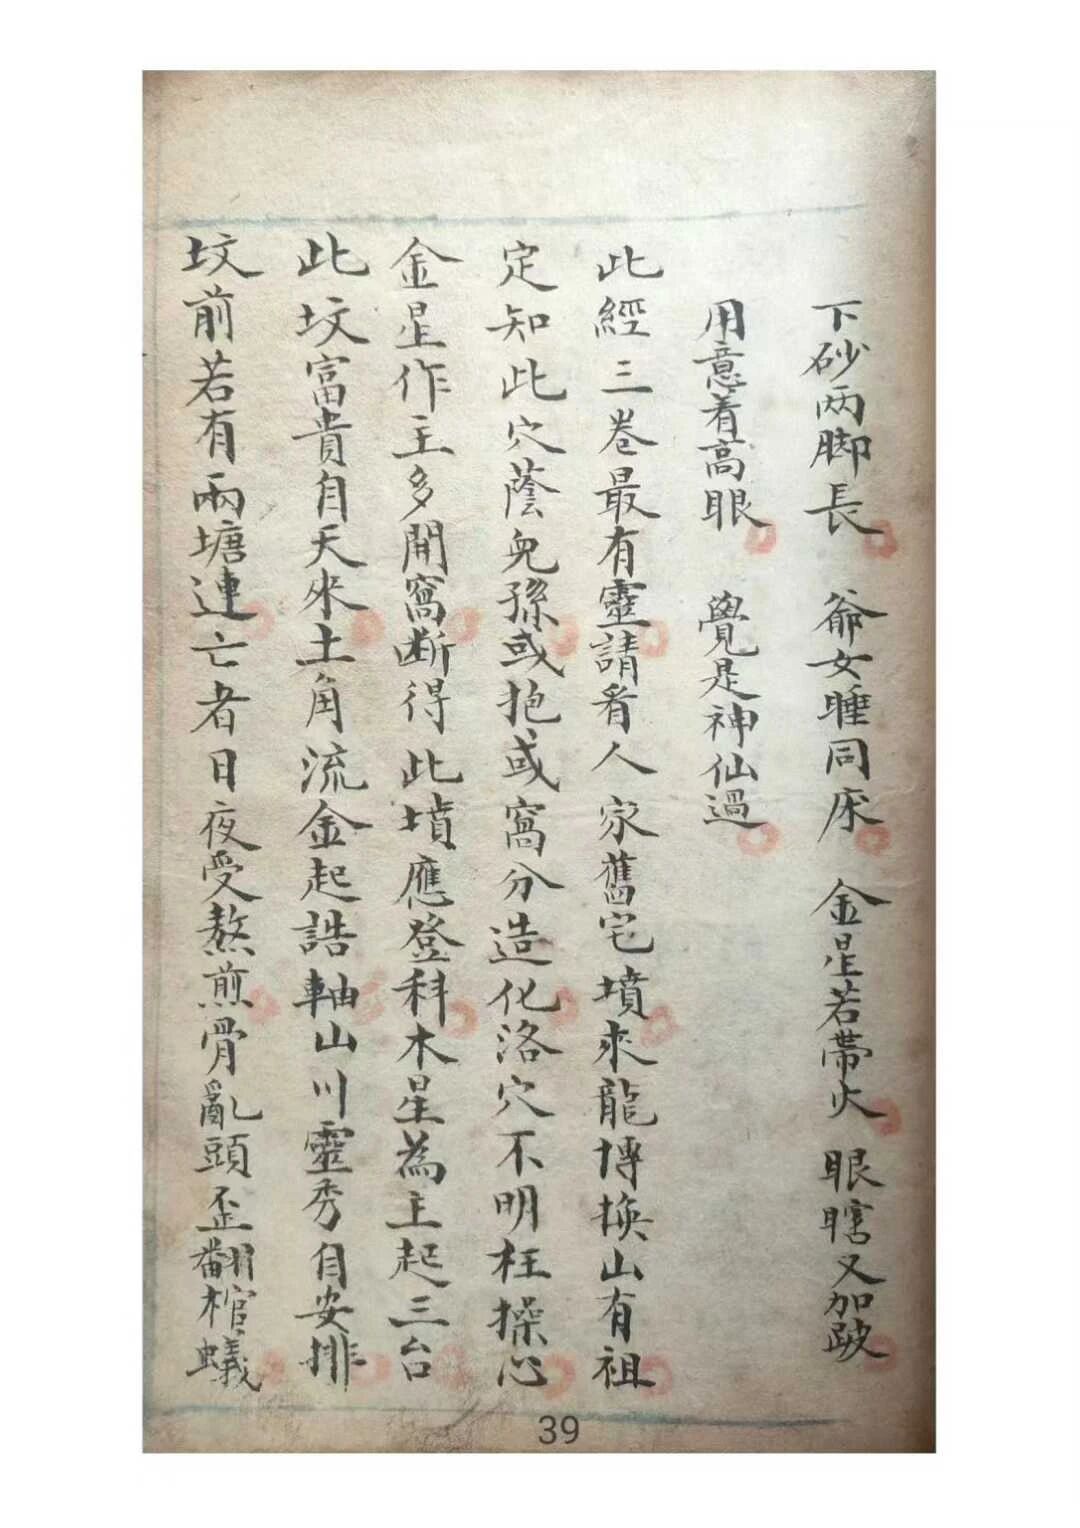 下砂两脚長　爺女睡同床　金星若帶火　眼瞎又加跛
用意着高眼　覺是神仙過
此經三卷最有靈請看人家舊宅墳來龍博換山有祖
定知此穴蔭兒孫或抱或窩分造化洛穴不明枉操心
金星作主多開窩断得此墳應登科木星為主起三台
此坟富貴自天來土角流金起誥軸山川靈秀自安排
坟前若有兩塘連亡者日夜受熬煎骨亂頭歪翻棺蟻
39